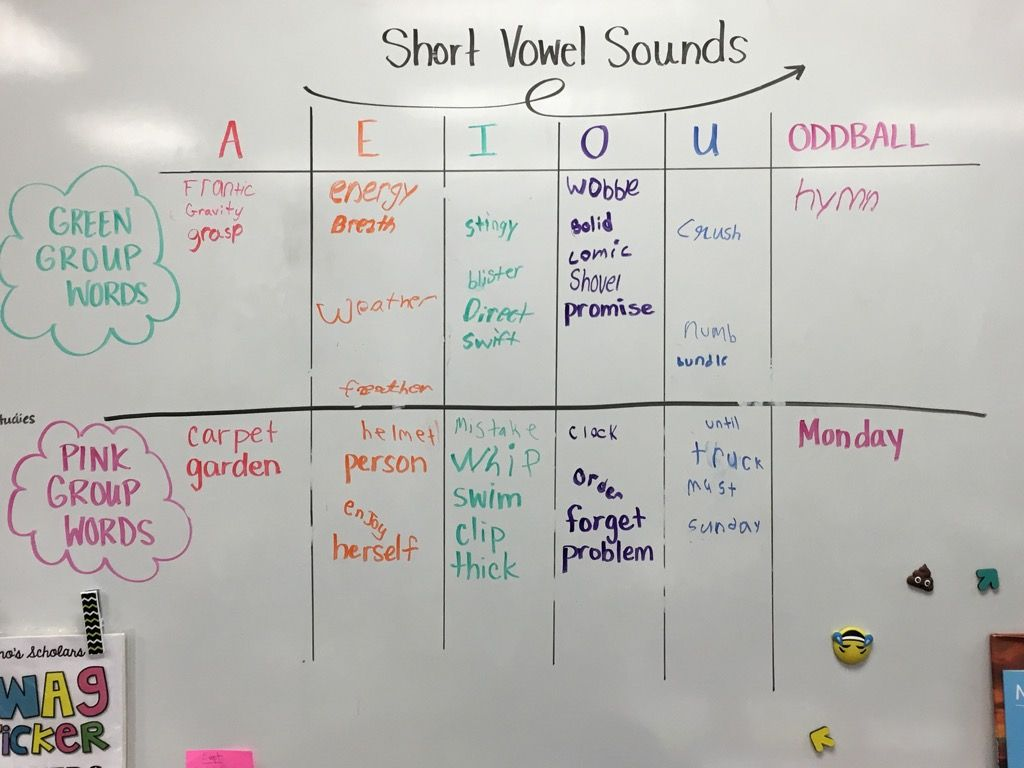 Short Vowel Sounds
A E I O U ODDBALL
GREEN
GROUP
WORDS
Frantic
Gravity
grasp
energy
Breath
Weather
freather
stingy
blister
Direct
swift
wobbe
solid
comic
Shovel
promise
Crush
numb
bundle
hymn
tudies
PINK
GROUP
WORDS
carpet
garden
helmet
person
enjoy
herself
Mistake
Whip
swim
clip
thick
clock
order
forget
problem
until
truck
must
sunday
Monday
no's Scholars
WAG
icker